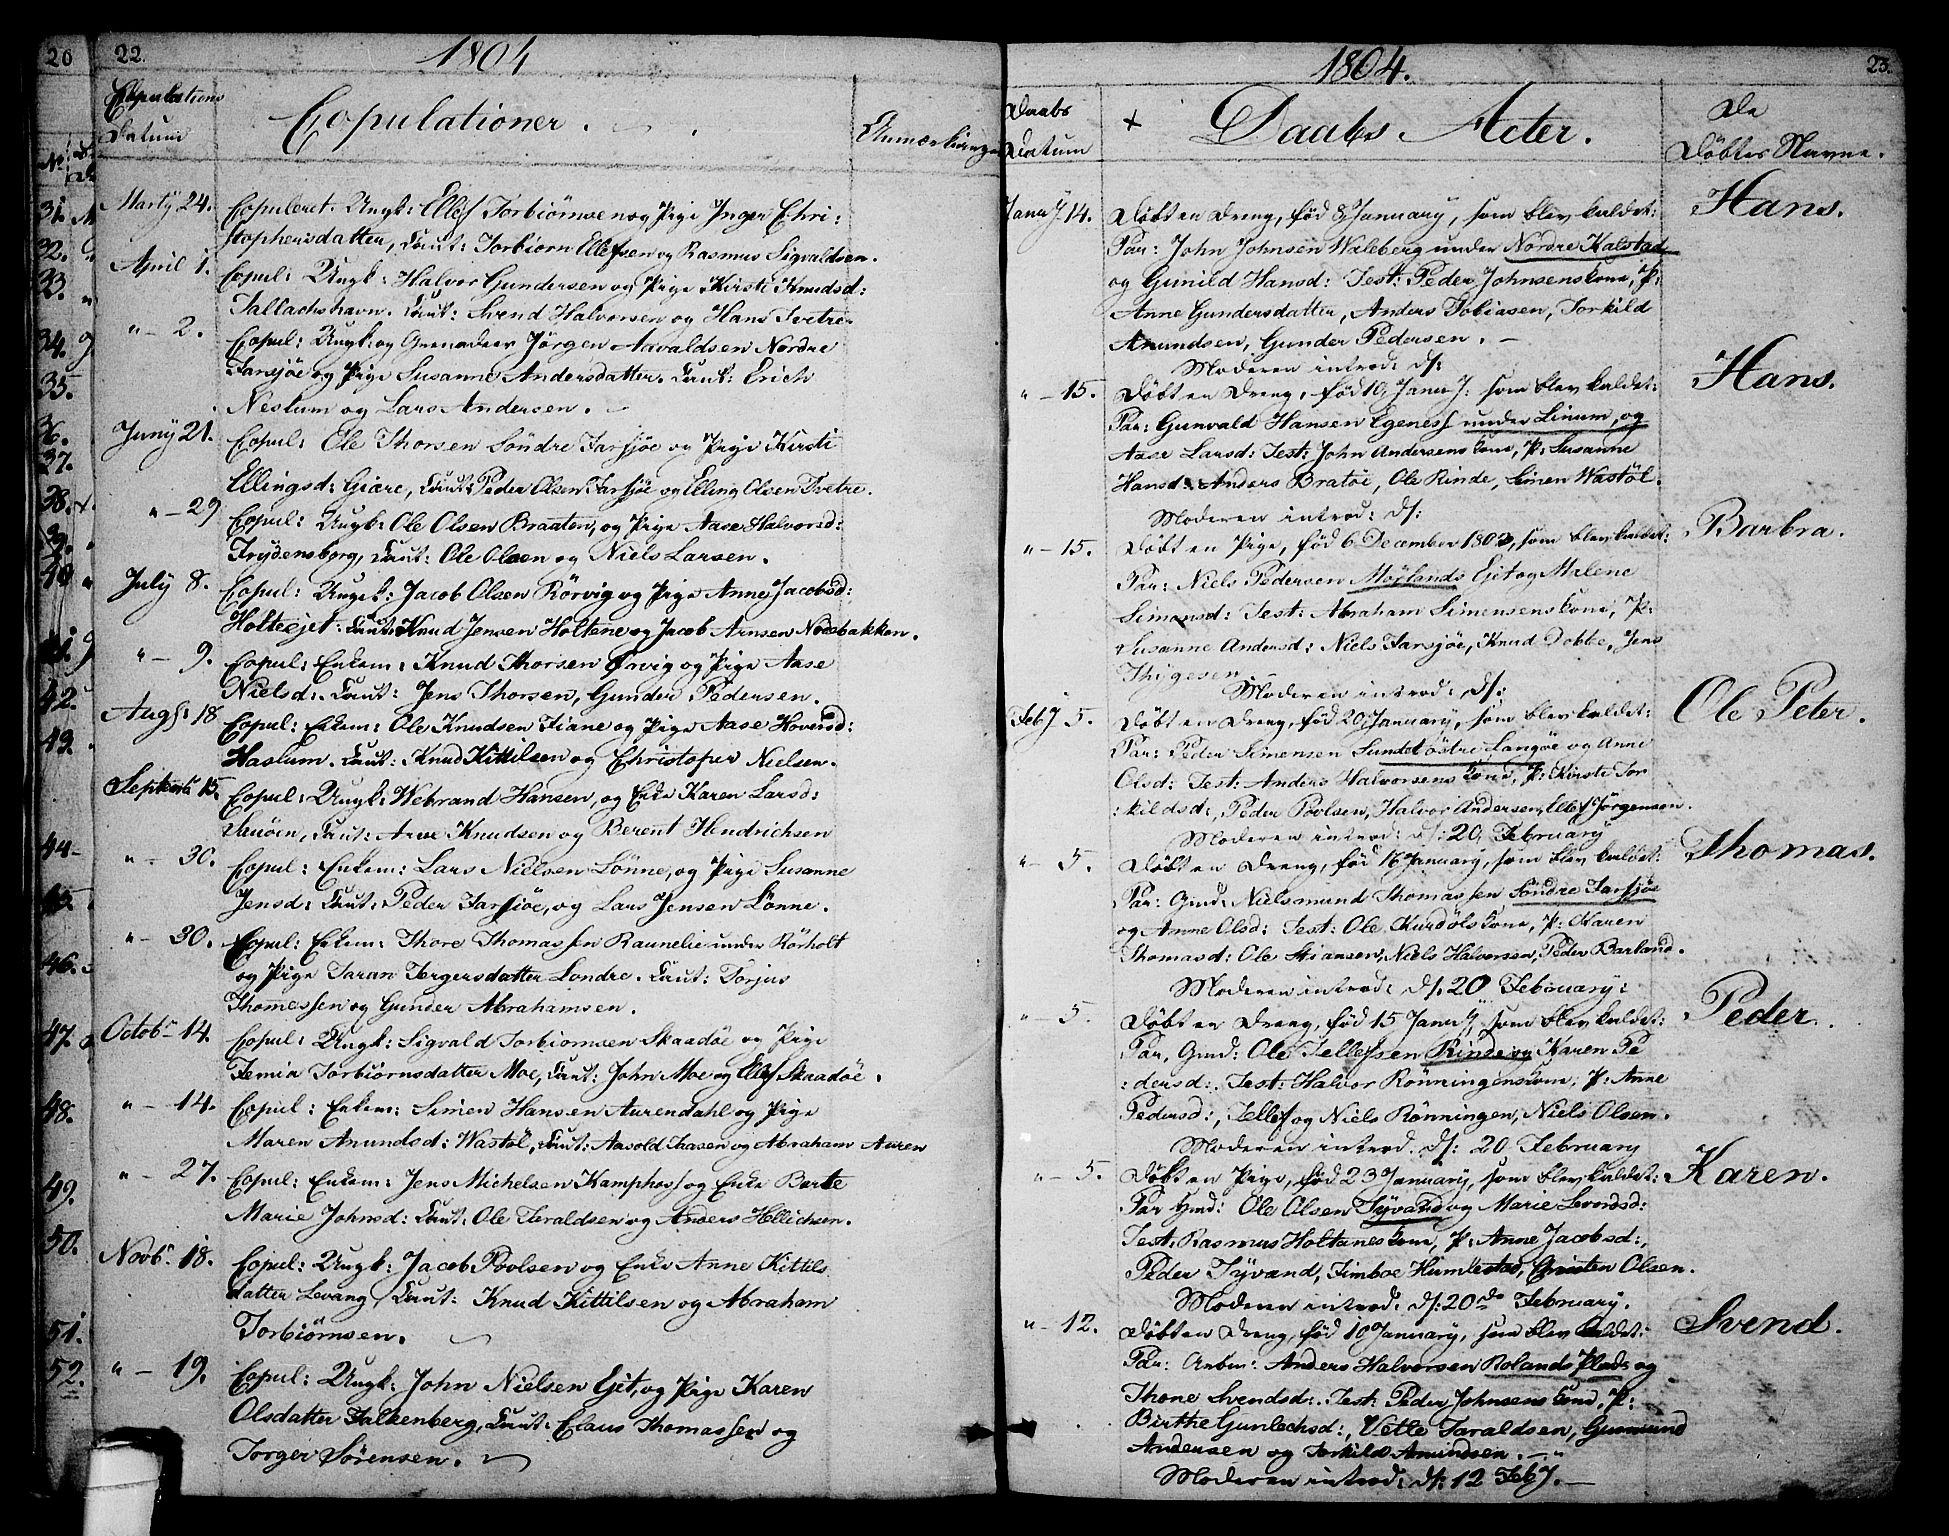 20
No
31.
32.
33.
34.
35.
36.
37.
38.
39.
40
41.
42.
43.
44
45.
46.
47.
48.
49.
50.
51.
52.
22.
1804
Copulations Datum
Copulationer.
Anmærkninger
Marty 24. Copuleret. Ungk: Ellef Torbiörnsen og Pige Inger Chri:
stophersdatter, Caut: Torbiorn Ellefsen og Rasmus Sigvaldsen.
April 1. Copul: Ungk: Halvor Gundersen og Pige Kirsti Knudsd:
Tallachshavn. Caut: Svend Halvorsen og Hans Tvetre
" - 2. Copul: Ungk: og Grenadeer Jörgen Aavaldsen Nordre
Farsjöe og Pige Susanne Andersdatter. Caut: Erich
Neslum og Lars Andersen.
Juny 21. Copul: Ole Thorsen Söndre Farsjöe og Pige Kirsti
Ellingsd: Giare, Caut: Peder Olsen Farsjöe og Elling Olsen Tvetre.
" - 29 Copul: Ungk: Ole Olsen Braaten, og Pige Aase Halvorsd:
Frydensborg, Caut: Ole Olsen og Niels Larsen.
July 8. Copul: Ungk: Jacob Olsen Rörvig og Pige Anne Jacobsd:
Holteejet. Caut: Knud Jensen Holtene og Jacob Arnsen Noesbakken.
" - 9. Copul: Enkem: Knud Thorsen og Pige Aase
Nielsd: Caut: Jens Thorsen, Gunder Pedersen.
Augs: 18 Copul: Enkem: Ole Knudsen Fiane og Pige Aase Hoversd:
Haslum. Caut: Knud Kittilsen og Christopher Nielsen.
Septembr 15. Copul: Ungk: Webrand Hansen, og Enke Karen Larsd:
Caut: Arve Knudsen og Berent Hendrichsen
" - 30. Copul: Enkem: Lars Nielsen Lönne, og Pige Susanne
Jensd: Caut: Peder Farsjöe, og Lars Jensen Lönne.
" - 30. Copul: Enkem: Thore Thomassen Raunelie under Rörholt
og Pige Taran Tergersdatter Londre. Caut: Torjus
Thomessen og Gunder Abrahamsen.
Octobr 14. Copul: Ungk: Sigvald Torbiornsen Skaadöe og Pige
Femia Torbiörnsdatter Moe, Caut: John Moe og Ellef Skaadöe.
" - 14. Copul: Enkem: Simen Hansen Aurendahl og Pige
Maren Anundsd: Wastöl, Caut: Aasold Aasen og Abraham Auren
" - 27. Copul: Enkem: Jens Michelsen Kamphos og Enke Barte
Marie Johnsd: Caut: Ole Teraldsen og Anders Hellichsen.
Novbr 18. Copul: Ungk: Jacob Povlsen og Enke Anne Kittils
datter Levang, Caut: Knud Kittilsen og Abraham
Torbiörnsen.
" - 19. Copul: Ungk: John Nielsen Ejet, og Pige Karen
Olsdatter Falkenberg, Caut: Claus Thomassen og
Torger Sörensen.
1804.
23.
Daabs Datum
+ Daabs Acter.
De Döbtes Navne.
Janry 14. Döbt en Dreng, föd 8 January, som blev kaldet: Hans.
Par: John Johnsen Waleberg under Nordre Kalstad
og Gunild Hansd: Test: Peder Johnsens kone, P:
Anne Gundersdatter, Anders Tobiasen, Torkild
Anundsen, Gunder Pedersen.
Moderen introd: ds:
" - 15. Döbt en Dreng, föd 10 Janry: som blev kaldet: Hans.
Par: Gunvald Hansen Egenes under Linum, og
Aase Larsd: Test: John Andersens kone, P: Susanne
Hansd: Anders Bratöe, Ole Rinde, Simen Wastöl.
Moderen introd: ds:
" - 15. Döbt en Pige, föd 6 December 1803, som blev kaldet: Barbra.
Par: Niels Pedersen Mörlands Ejet og Malene
Simonsd: Test: Abraham Simensens kone, P:
Susanne Andersd: Niels Farsjöe, Knud Dobbe, Jens
Thigesen
Moderen introd: ds:
Feby 5. Döbt en Dreng, föd 20 January, som blev kaldet: Ole Peter.
Par: Peder Simensen Sundet östre Langöe og Anne
Olsd: Test: Anders Halvorsens kone, P: Kirsti Tor
:kildsd:, Peder Povlsen, Halvor Andersen, Ellef Jörgensen.
Moderen introd: ds: 20 February
" - 5. Döbt en Dreng, föd 16 January, som blev kaldet: Thomas.
Par: Gmd: Nielsmund Thomassen Söndre Farsjöe
og Anne Olsd: Test: Ole Kurdöls kone, P: Karen
Thomasd: Ole Stiansen, Niels Halvorsen, Peder Barland.
Moderen introd: ds: 20 February:
" - 5. Döbt en Dreng, föd 15 Janry, som blev kaldet: Peder.
Par, Gmd: Ole Tellefsen Rinde og Karen Pe
:dersd:. Test: Halvor Rönningens kone, P: Anne
Pedersd:, Tellef og Niels Rönningen, Niels Olsen.
Moderen introd. ds: 20 February
" - 5. Döbt en Pige, föd 23 January, som blev kaldet: Karen.
Par Hmd: Ole Olsen Tyvand og Marie Levordsd:
Test: Rasmus Holtanes kone, P: Anne Jacobsd:,
Peder Tyvand, Timboe Humlestad, Christen Olsen.
Moderen introd. ds: 20de February.
" - 12. Döbt en Dreng, föd 10 January, som blev kaldet: Svend.
Par: Arbm: Anders Halvorsen Rolands Plads og
Thone Svendsd:. Test: Peder Johnsens kone, P:
Birthe Gunlechsd:, Vetle Taraldsen, Gunmund
Andersen og Torkild Amundsen.
Moderen introd: ds: 12 Feby.